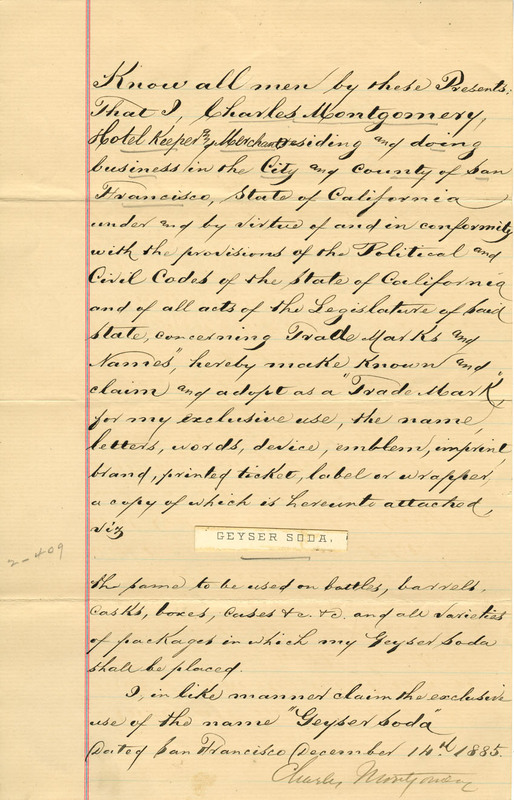 Know all men by these Presents:
That I, Charles Montgomery,
Hotel Keeper & Merchant residing and doing
business in the City and County of San
Francisco, State of California
under and by virtue of and in conformity
with the provisions of the Political and
Civil Codes of the State of California
and of all acts of the Legislature of said
State, concerning Trade Marks and
Names", hereby make known and
claim and adopt as a "Trade Mark",
for my exclusive use, the name,
letters, words, device, emblem, imprint
brand, printed ticket, label or wrapper,
a copy of which is hereunto attached,
viz
GEYSER SODA.
2-409
the same to be used on bottles, barrels,
casks, boxes, cases &c. &c. and all varieties
of packages in which my Geyser Soda
shall be placed.
I, in like manner claim the exclusive
use of the name "Geyser Soda"
Dated San Francisco December 14th 1885.
Charles Montgomery